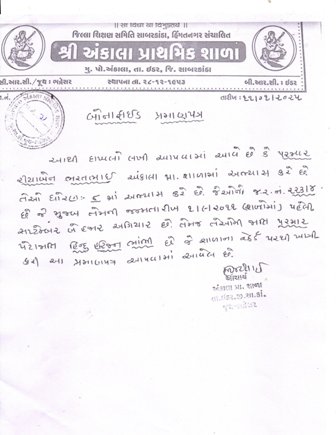 ॥ સા વિદ્યા યા વિમુક્તયે ॥
જિલ્લા શિક્ષણ સમિતિ સાબરકાંઠા, હિંમતનગર સંચાલિત
શ્રી અંકાલા પ્રાથમિક શાળા
મુ. પો.અંકાલા, તા. ઇડર, જિ. સાબરકાંઠા
સી.આર.સી./જૂથ : ભદ્રેસર સ્થાપના તા. ૨૮-૧૨-૧૯૫૩ બી.આર.સી. : ઇડર
તારીખ :
બોનાફાઈડ પ્રમાણપત્ર
આથી દાખલો લખી આપવામાં આવે છે કે પરમાર
રીયાબેન ભરતભાઈ અંકાલા પ્રા. શાળામાં અભ્યાસ કરે છે
તેઓ ધોરણ: ૬ માં અભ્યાસ કરે છે. જેઓનો જ.ર.નં. ૨૨૩૧૪
છે જે મુજબ તેમની જન્મતારીખ ૧/૯/૨૦૧૧ (શબ્દોમાં) પહેલી
સપ્ટેમ્બર બે હજાર અગિયાર છે તેમજ તેઓની જાતિ પરમાર
પેટાજાતિ હિન્દુ હરિજન ભાંભી છે જે શાળાના રેકર્ડ પરથી ખાત્રી
કરી આ પ્રમાણપત્ર આપવામાં આવેલ છે.
આચાર્ય
અંકાલા પ્રા. શાળા